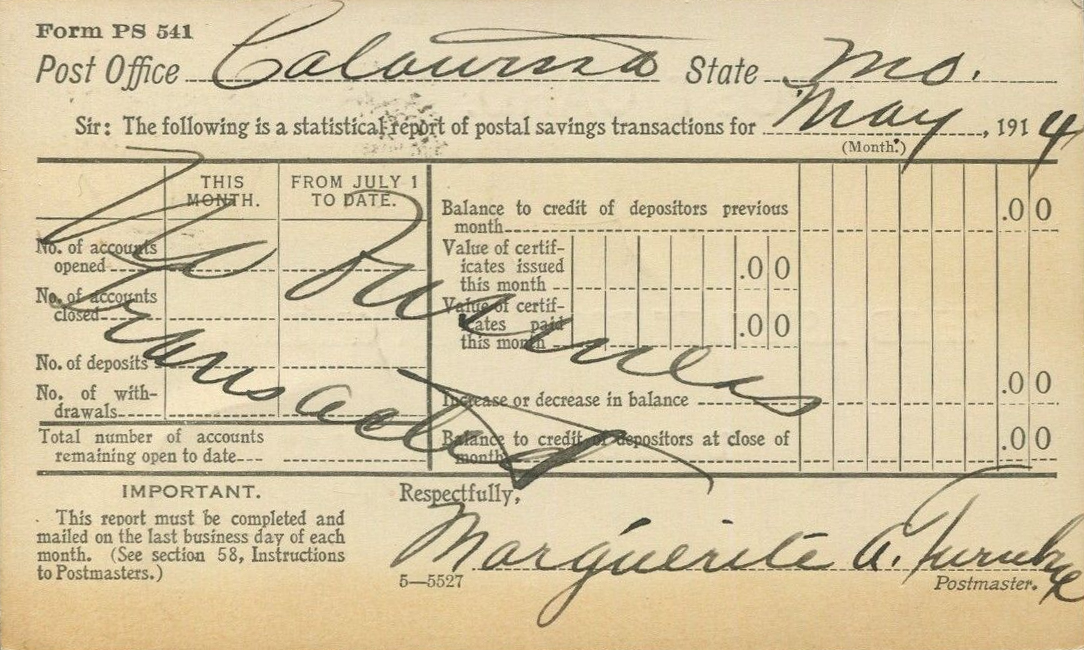 Form PS 541
Post Office Calowma State Mo.
Sir: The following is a statistical report of postal savings transactions for May, 1914
(Month.)
THIS MONTH.
FROM JULY 1 TO DATE.
No. of accounts opened
No. of accounts closed
No. of deposits
No. of with-
drawals
Total number of accounts
remaining open to date
No Business
Transacted
Balance to credit of depositors previous
month .00
Value of certif-
icates issued
this month .00
Value of certif-
icates paid
this month .00
Increase or decrease in balance .00
Balance to credit of depositors at close of
month .00
IMPORTANT.
This report must be completed and
mailed on the last business day of each
month. (See section 58, Instructions
to Postmasters.)
Respectfully,
Marguerite A.
5—5527
Postmaster.